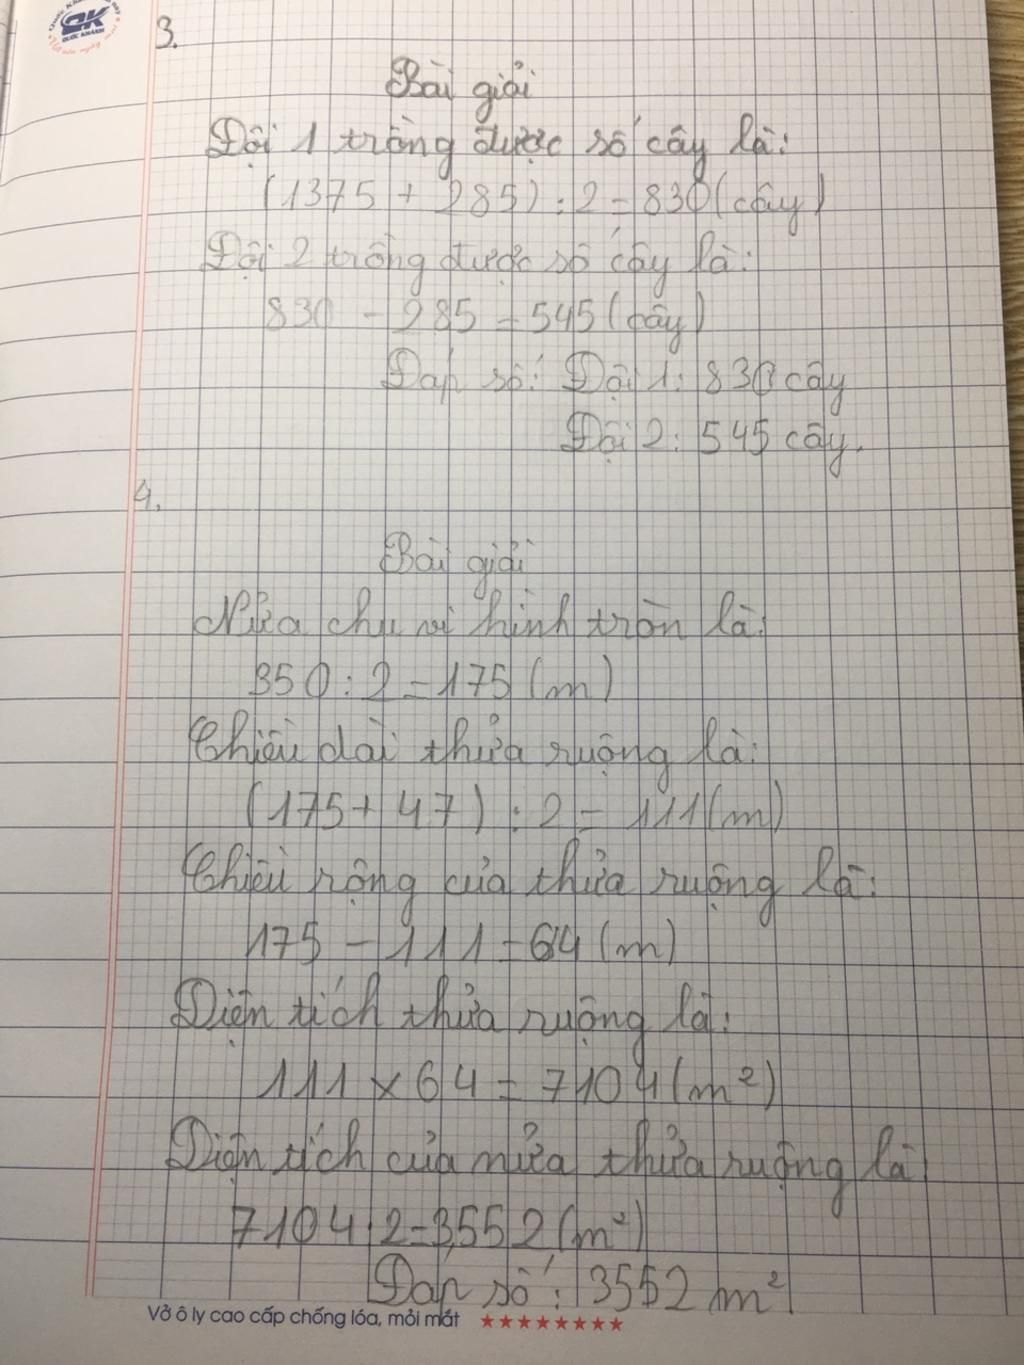 QK
QUỐC KHÁNH
3.
Bài giải
Đội 1 trồng được số cây là:
(1375 + 285) : 2 = 830 (cây)
Đội 2 trồng được số cây là:
830 - 285 = 545 (cây)
Đáp số: Đội 1: 830 cây
Đội 2: 545 cây.
4.
Bài giải
Nửa chu vi hình tròn là:
350 : 2 = 175 (m)
Chiều dài thửa ruộng là:
(175 + 47) : 2 = 111 (m)
Chiều rộng của thửa ruộng là:
175 - 111 = 64 (m)
Diện tích thửa ruộng là:
111 x 64 = 7104 (m²)
Diện tích của nửa thửa ruộng là
7104 : 2 = 3552 (m²)
Đáp số: 3552 m²
Vở ô ly cao cấp chống lóa, mỏi mắt ★★★★★★★★